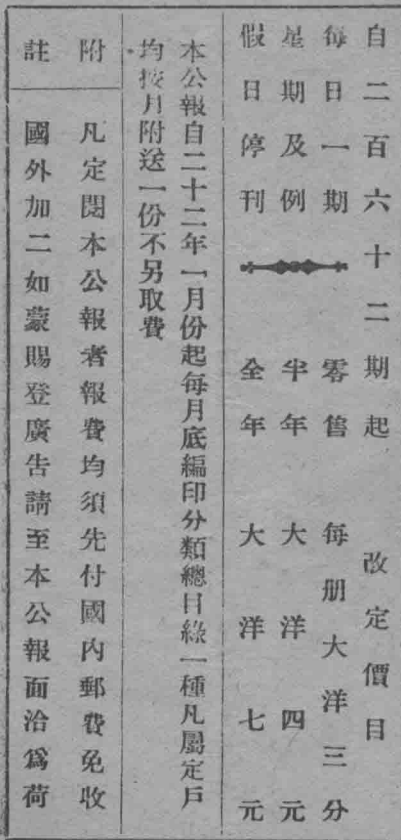 自二百六十二期起　改定價目
每日一期　零售　每册大洋三分
星期及例　半年　大洋四元
假日停刊　全年　大洋七元
本公報自二十二年一月份起每月底編印分類總目錄一種凡屬定戶
均按月附送一份不另取費
附註
凡定閱本公報者報費均須先付國內郵費免收
國外加二如蒙賜登廣告請至本公報面洽爲荷